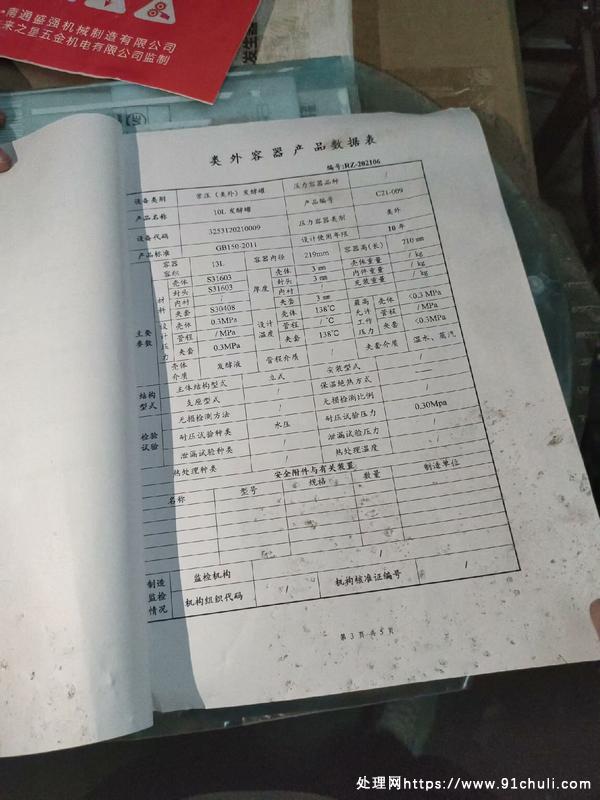 南通盛强机械制造有限公司
来之星五金机电有限公司监制
类外容器产品数据表
编号:RZ-202106
设备类别 常压（类外）发酵罐 压力容器品种 /
产品名称 10L 发酵罐 产品编号 C21-009
设备代码 3253120210009 压力容器类别 类外
产品标准 GB150-2011 设计使用年限 10 年
主要参数
容器容积 13L 容器内径 219mm 容器高(长) 710 mm
材料 壳体 S31603 厚度 壳体 3 mm 壳体重量 / kg
封头 S31603 封头 3 mm 内件重量 / kg
内衬 / 内衬 / 充装重量 / kg
夹套 S30408 夹套 3 mm 最高允许工作压力 壳体 <0.3 MPa
设计压力 壳体 0.3MPa 设计温度 壳体 138℃ 管程 / MPa
管程 / MPa 管程 / ℃ 夹套 <0.3MPa
夹套 0.3MPa 夹套 138℃
壳体介质 发酵液 管程介质 / 夹套介质 温水、蒸汽
结构型式 主体结构型式 立式 安装型式 ——
支座型式 / 保温绝热方式 /
检验试验 无损检测方法 / 无损检测比例 /
耐压试验种类 水压 耐压试验压力 0.30Mpa
泄漏试验种类 / 泄漏试验压力 /
热处理种类 / 热处理温度 /
安全附件与有关装置
名称 型号 规格 数量 制造单位
制造监检情况 监检机构 /
机构组织代码 / 机构核准证编号 /
第 3 页 共 5 页
处理网https://www.91chuli.com/